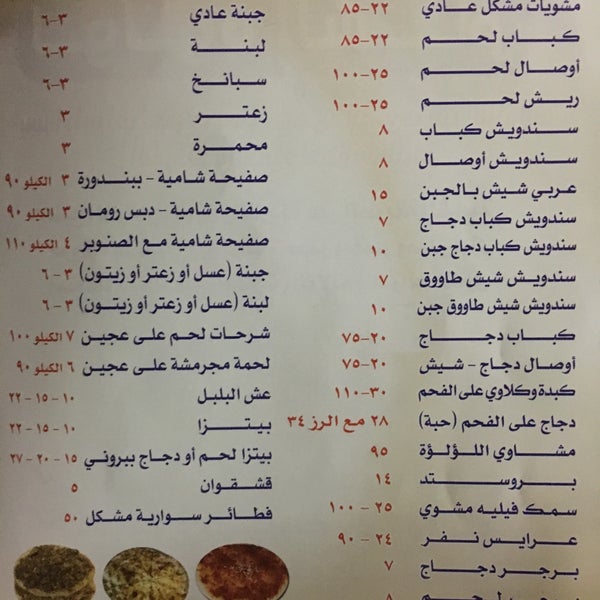 مشويات مشكل عادي ٢٢-٨٥
كباب لحم ٢٢-٨٥
أوصال لحم ٢٥-١٠٠
ريش لحم ٢٥-١٠٠
سندويش كباب ٨
سندويش أوصال ٨
عربي شيش بالجبن ١٥
سندويش كباب دجاج ٧
سندويش كباب دجاج جبن ١٠
سندويش شيش طاووق ٧
سندويش شيش طاووق جبن ١٠
كباب دجاج ٢٠-٧٥
أوصال دجاج - شيش ٢٠-٧٥
كبدة وكلاوي على الفحم ٣٠-١١٠
دجاج على الفحم (حبة) ٢٨ مع الرز ٣٤
مشاوي اللؤلؤة ٩٥
بروستد ١٤
سمك فيليه مشوي ٢٥ - ١٠٠
عرايس نفر ٢٤ - ٩٠
برجر دجاج ٧
لحم ٨
جبنة عادي ٣-٦
لبنة ٣-٦
سبانخ ٣-٦
زعتر ٣
محمرة ٣
صفيحة شامية - ببندورة ٣ الكيلو ٩٠
صفيحة شامية - دبس رومان ٣ الكيلو ٩٠
صفيحة شامية مع الصنوبر ٤ الكيلو ١١٠
جبنة (عسل أو زعتر أو زيتون) ٣ - ٦
لبنة (عسل أو زعتر أو زيتون) ٣ - ٦
شرحات لحم على عجين ٧ الكيلو ١٠٠
لحمة مجرمشة على عجين ٦ الكيلو ٩٠
عش البلبل ١٠ - ١٥ - ٢٢
بيتزا ١٠ - ١٥ - ٢٢
بيتزا لحم أو دجاج ببروني ١٥ - ٢٠ - ٢٧
قشقوان ٥
فطائر سوارية مشكل ٥٠